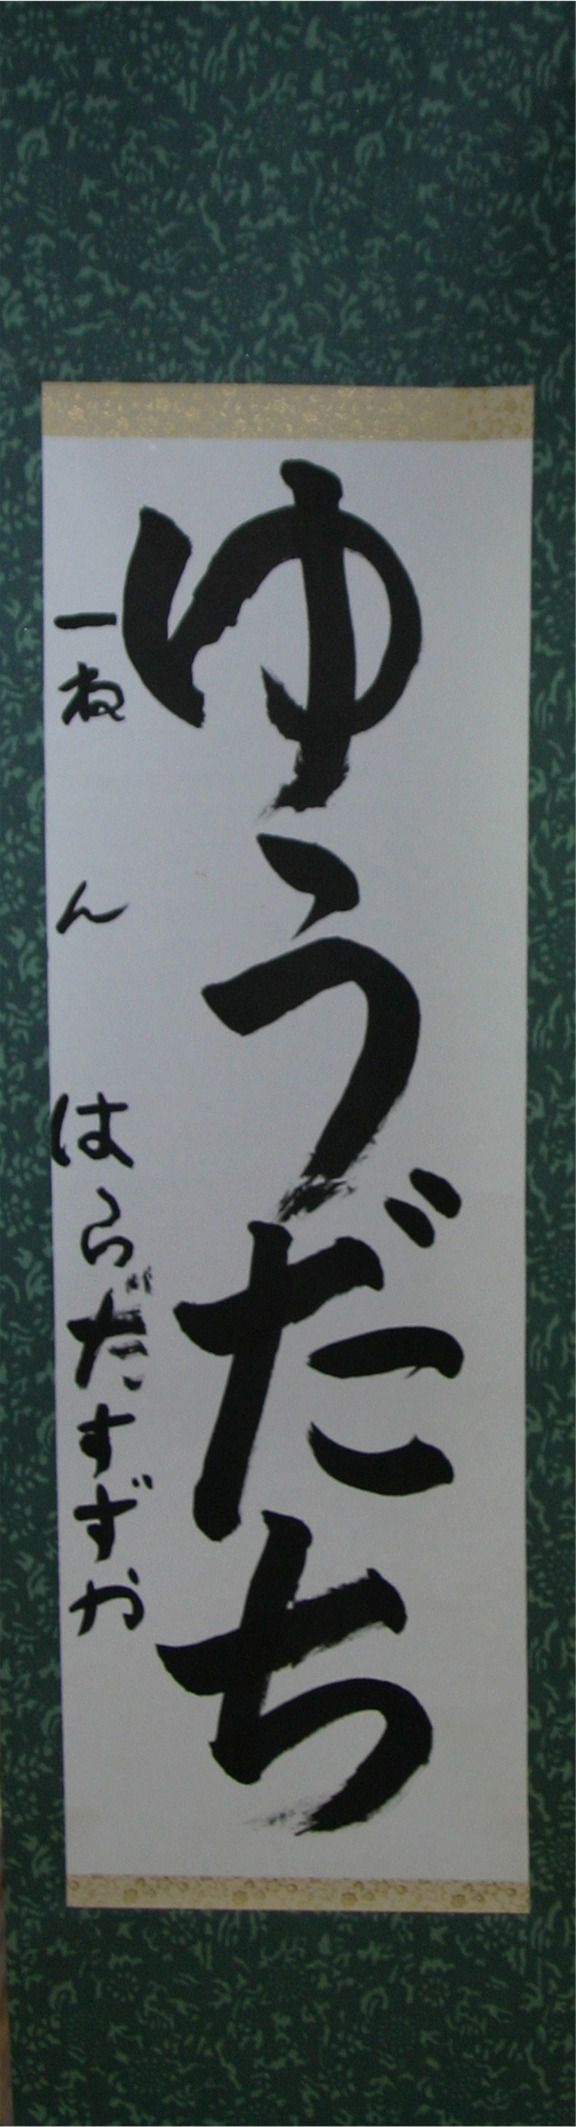 ゆうだち
一ねん はらだすずか